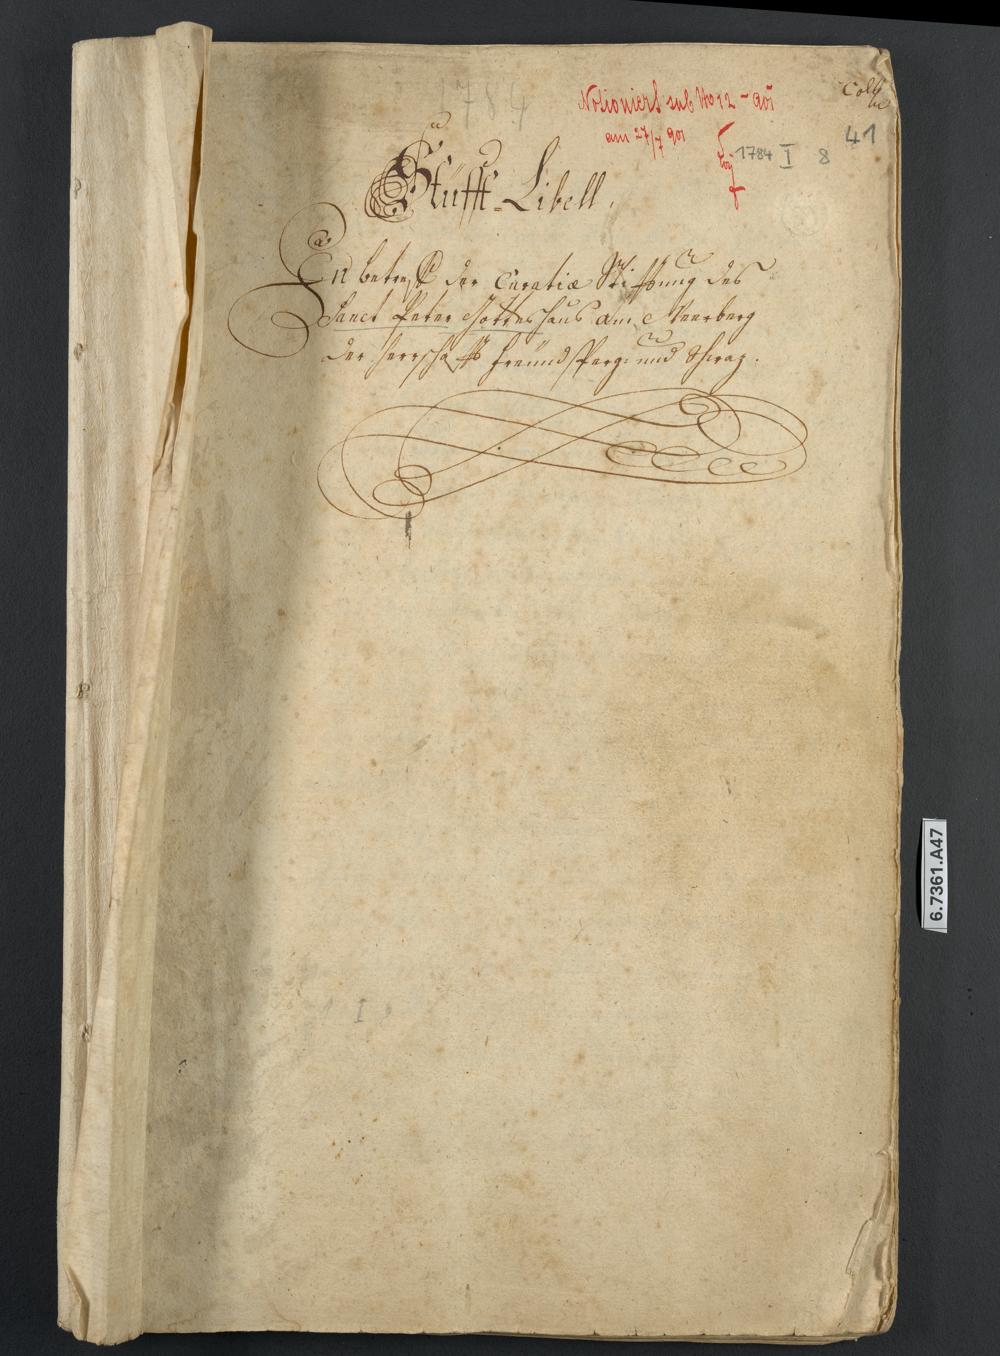 1784
Notioniert sub No 12 - 901
am 27/7 901
Coll
41
1784 I 8
Stüfft-Libell.
En betreff der Curatiæ Stifftung des
Sanct Peter Gotteshaus am Weerberg
der Herrschafft Freündsperg: und Schwaz.
I
6.7361.A47